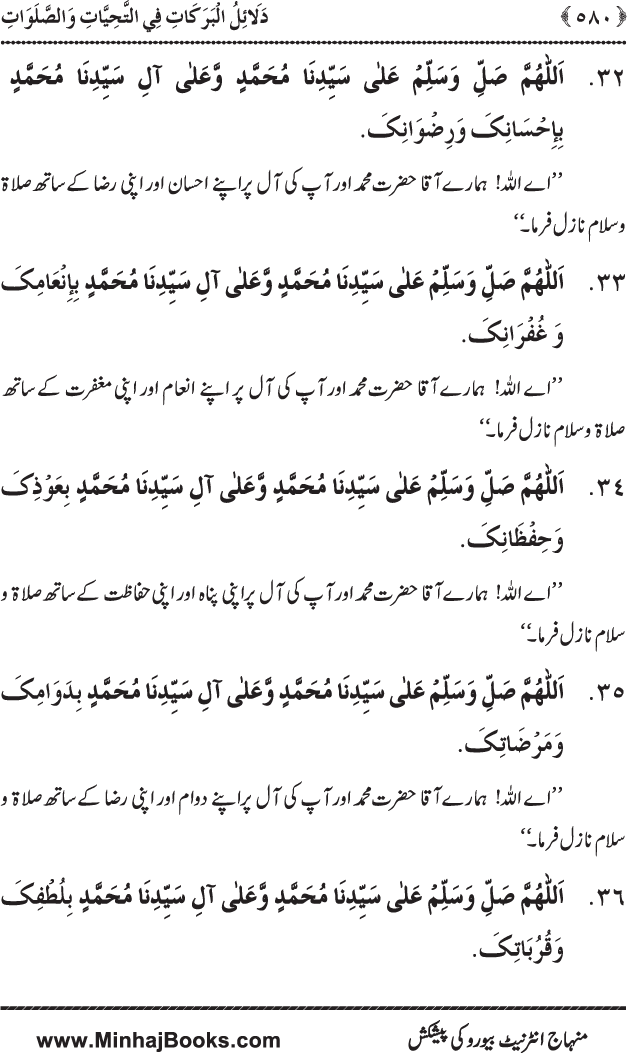 ﴿٥٨٠﴾ دَلَائِلُ الْبَرَكَاتِ فِي التَّحِيَّاتِ وَالصَّلَوَاتِ
٣٢. اَللّٰهُمَّ صَلِّ وَسَلِّمْ عَلٰی سَيِّدِنَا مُحَمَّدٍ وَّعَلٰی آلِ سَيِّدِنَا مُحَمَّدٍ
بِإِحْسَانِکَ وَرِضْوَانِکَ.
’’اے اللہ! ہمارے آقا حضرت محمد اور آپ کی آل پر اپنے احسان اور اپنی رضا کے ساتھ صلاۃ
وسلام نازل فرما۔‘‘
٣٣. اَللّٰهُمَّ صَلِّ وَسَلِّمْ عَلٰی سَيِّدِنَا مُحَمَّدٍ وَّعَلٰی آلِ سَيِّدِنَا مُحَمَّدٍ بِإِنْعَامِکَ
وَ غُفْرَانِکَ.
’’اے اللہ! ہمارے آقا حضرت محمد اور آپ کی آل پر اپنے انعام اور اپنی مغفرت کے ساتھ
صلاۃ وسلام نازل فرما۔‘‘
٣٤. اَللّٰهُمَّ صَلِّ وَسَلِّمْ عَلٰی سَيِّدِنَا مُحَمَّدٍ وَّعَلٰی آلِ سَيِّدِنَا مُحَمَّدٍ بِعَوْذِکَ
وَحِفْظَانِکَ.
’’اے اللہ! ہمارے آقا حضرت محمد اور آپ کی آل پر اپنی پناہ اور اپنی حفاظت کے ساتھ صلاۃ و
سلام نازل فرما۔‘‘
٣٥. اَللّٰهُمَّ صَلِّ وَسَلِّمْ عَلٰی سَيِّدِنَا مُحَمَّدٍ وَّعَلٰی آلِ سَيِّدِنَا مُحَمَّدٍ بِدَوَامِکَ
وَمَرْضَاتِکَ.
’’اے اللہ! ہمارے آقا حضرت محمد اور آپ کی آل پر اپنے دوام اور اپنی رضا کے ساتھ صلاۃ و
سلام نازل فرما۔‘‘
٣٦. اَللّٰهُمَّ صَلِّ وَسَلِّمْ عَلٰی سَيِّدِنَا مُحَمَّدٍ وَّعَلٰی آلِ سَيِّدِنَا مُحَمَّدٍ بِلُطْفِکَ
وَقُرُبَاتِکَ.
منہاج انٹرنیٹ بیورو کی پیشکش www.MinhajBooks.com